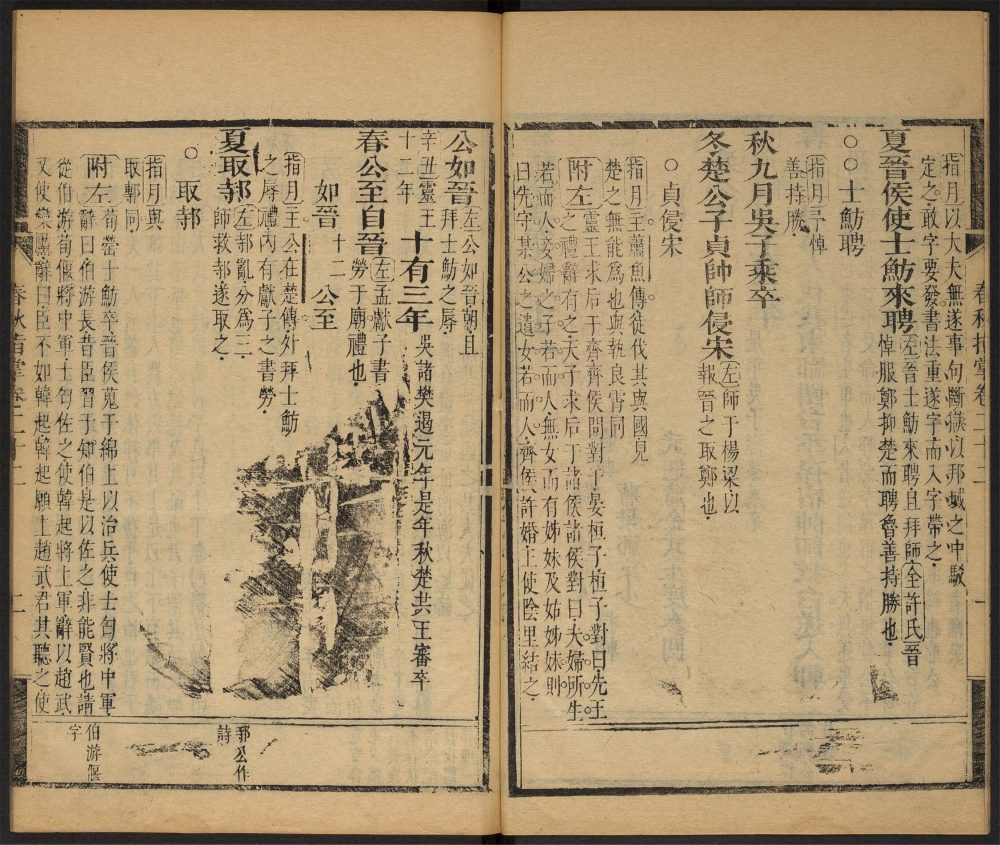 指月以大夫無遂事句斷
定之敢字要發書法重遂字而入字帶之
夏晉侯使士魴來聘左晉士魴來聘且拜師全許氏晉
悼服鄭抑楚而聘魯善持勝也
○○士魴聘
指月
善持勝
秋九月吳子乘卒
冬楚公子貞帥師侵宋左師于楊梁以
報晉之取鄭也
○貞侵宋
指月主蕭魚傳徒伐其與國見
楚之無能為也與執良霄同
附左靈王求后于齊齊侯問對于晏桓子桓子對曰先王
之禮辭有之天子求后于諸侯諸侯對曰夫婦所生
若而人妾婦之子若而人無女而有姊妹及姑姊妹則
曰先守某公之遺女若而人齊侯許婚王使陰里結之
春秋指掌卷二十二
一
公如晉左公如晉朝且
拜士魴之辱
辛丑靈王
十二年
十有三年吳諸樊遏元年是年秋楚共王審卒
春公至自晉左孟獻子書
勞于廟禮也
如晉十二 公至
指月主公在楚傳外拜士魴
之辱禮內有獻子之書勞
夏取邿左邿亂分為三
師救邿遂取之
○取邿
指月與
取鄟同
附左荀罃士魴卒晉侯蒐于綿上以治兵使士匄將中軍
辭曰伯游長昔臣習于知伯是以佐之非能賢也請
從伯游荀偃將中軍士匄佐之使韓起將上軍辭以趙武
又使欒黶辭曰臣不如韓起韓起願上趙武君其聽之使
邿公作
詩
伯游偃
字
春秋指掌卷二十二
二